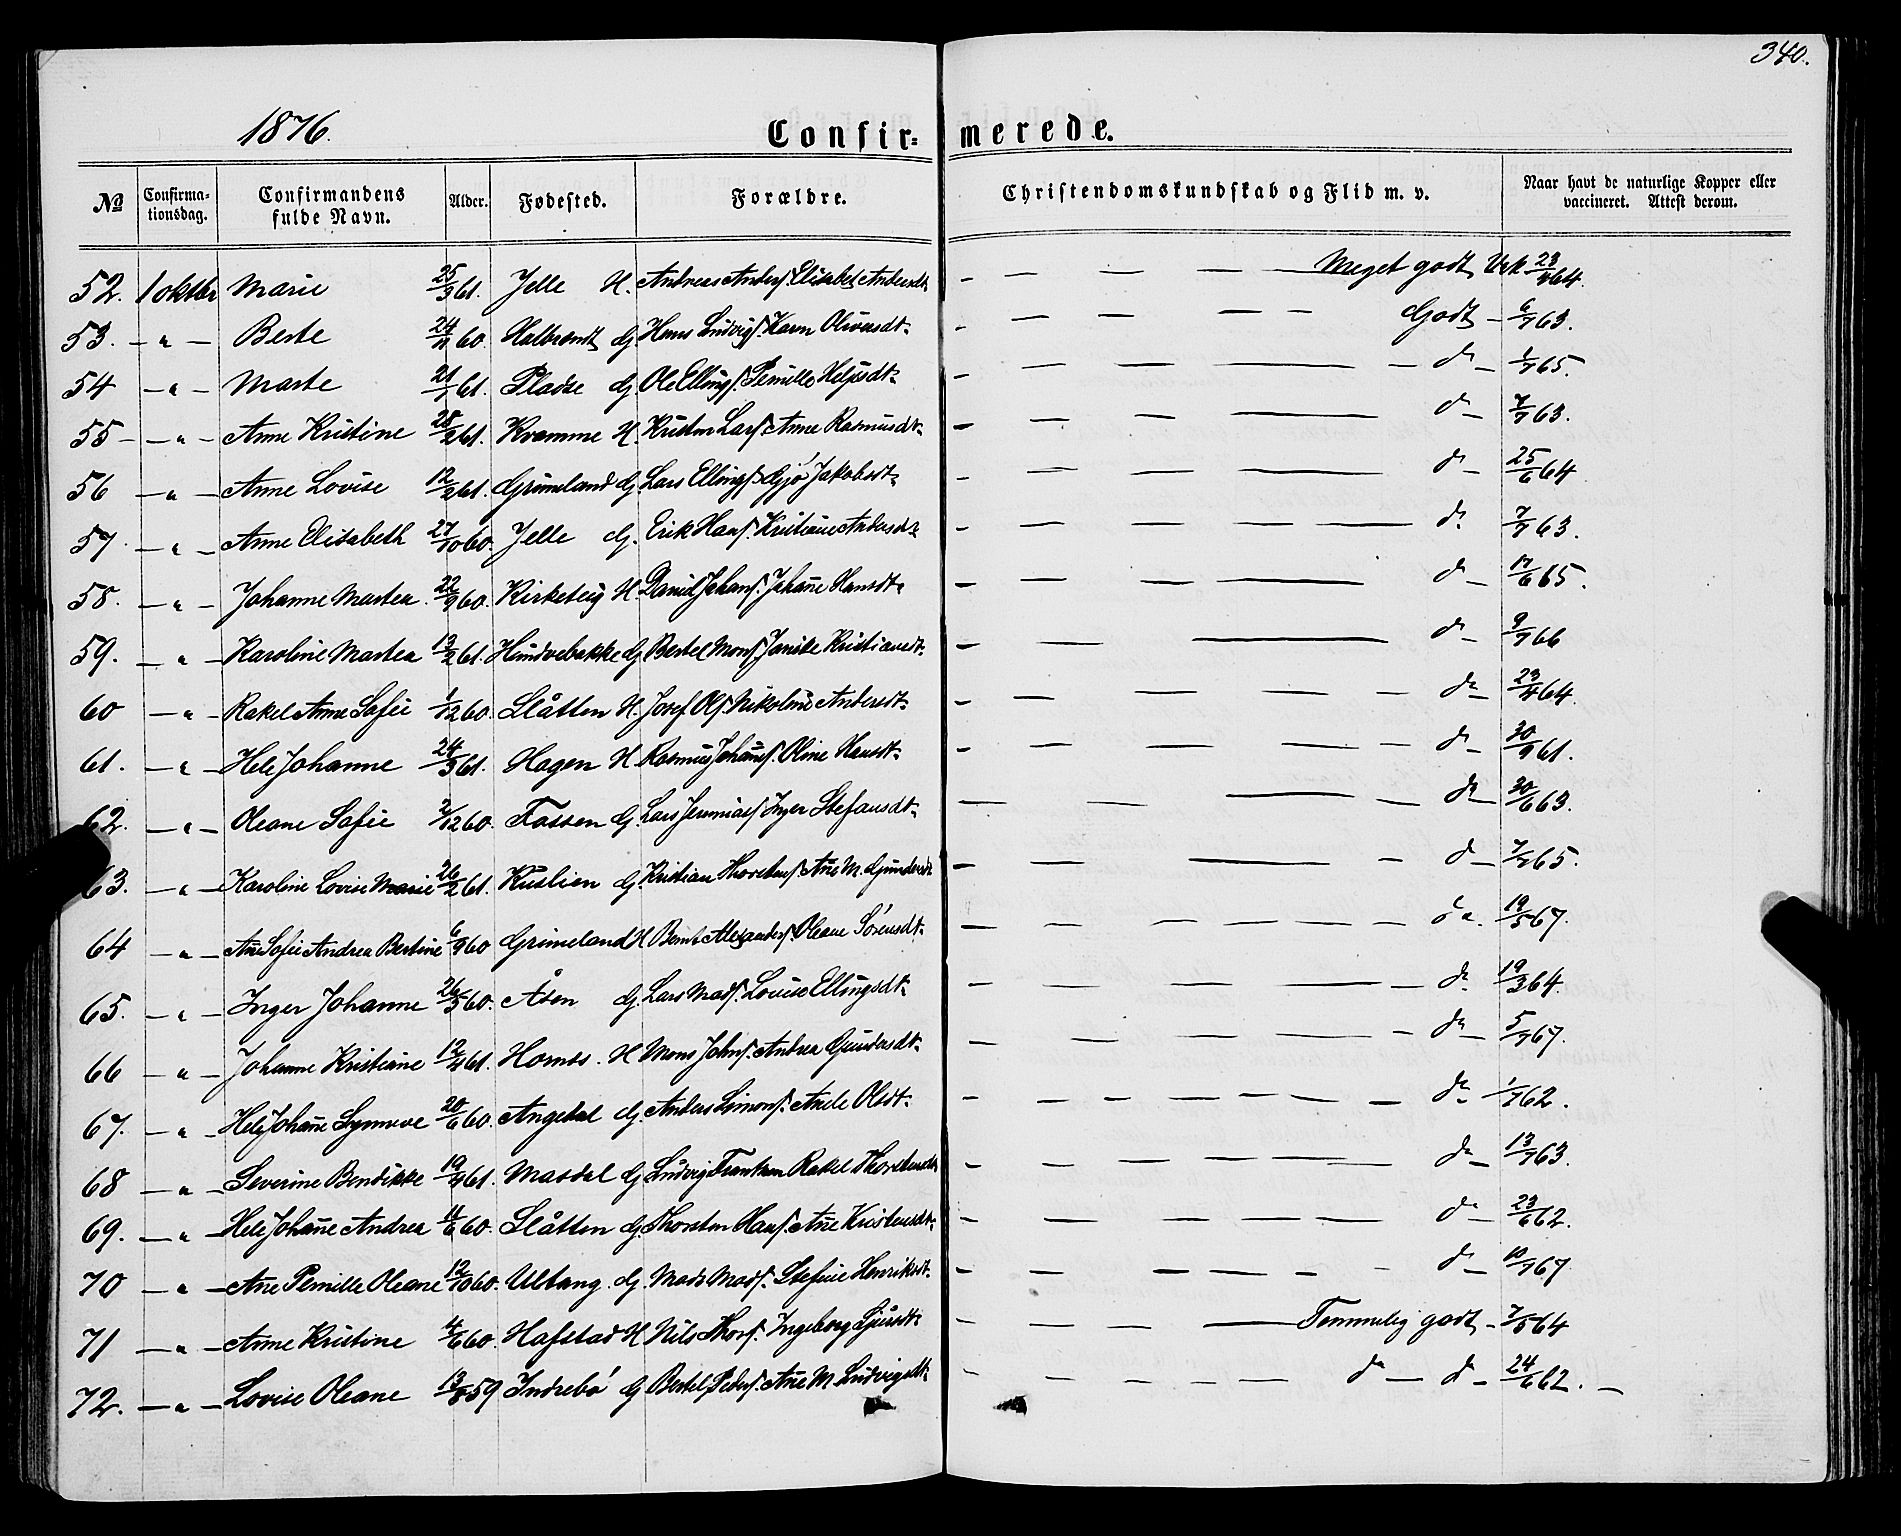 340.
1876.
Confir= merede.
No
Confirma-
tionsdag.
Confirmandens
fulde Navn.
Alder.
Fødested.
Forældre.
Christendomskundskab og Flid m. v.
Naar havt de naturlige Kopper eller
vaccineret. Attest derom.
52. 1 oktbr Marie 25/3 61. Jelle H. Andreas Anders. Elisabet Andersdt. - — — — — Meget godt 23/4 64.
53. — " — Berte 24/11 60. Halbrendt G. Hans Ludvigs. Karen Oliversdt. - — — — — Godt - 6/7 63.
54 — " — Marte 21/1 61. Pladse G. Ole Ellings. Pernille - — — — — do - 1/7 65.
55 - — " — Anne Kristine 28/2 61. Kramme H. Kristen Lars. Anne Rasmusdt. - — — — do - 7/7 63.
56 — " — Anne Lovise 12/2 61. Grimeland G. Lars Ellings. Gjø Jakobsdt. - — — — — do - 25/6 64
57 — " — Anne Elisabeth 27/10 60. Jelle G. Erik Hans. Kristiane Andersdt. - — — — — do 7/7 63.
58. — " — Johanne Martea 22/9 60. Kirketeig H. Daniel Johans. Johanne Hansdt. - — — — — do - 17/6 65.
59. — " — Karoline Martea 13/2 61. Hundvebakke G. Bertel Mons. Janike Kristiansdt. - — — do - 9/7 66
60 — " — Rakel Anne Sofie 1/12 60. Slåtten H. Josef Ols. Nikoline Andersdt. - — — — — do - 23/4 64.
61. — " — Hele Johanne 24/3 61. Hagen H. Rasmus Johans. Oline Hansdt. - — — — — do - 30/9 61.
62. — " — Oleane Sofie 2/12 60. Fossen G. Lars Jeremias. Inger Stefansdt. — — — — do - 30/6 63.
63. — " — Karoline Lovise Marie 26/2 61. Kuslien G. Kristian Thorstens. Ane M. Gundersdt. - — — — do - 7/7 65.
64 — " — Ane Sofie Andrea Bertine 6/9 60 Grimeland H Bernt Alexanders. Oleane Sørensdt. — — — — — — do 19/5 67.
65. — " — Inger Johanne 26/5 60. Åsen G. Lars Mads. Louise Ellingsdt. - — — — — — do 19/3 64.
66 — " — Johanne Kristiane 12/4 61. Hornes. H Mons Johns. Andrea Gundersdt. — — — — — do 5/7 67.
67. — " — Hele Johane Synneve 20/6 60. Angedal G. Anders Simons. Olsdt. - — — — — — — do 1/7 62.
68 — " — Severine Bendikke 19/4 61. Masdal G. Ludvig Rakel Thorstensdt. - — — — — — do - 13/7 63.
69. — " — Hele Johane Andrea 11/6 60. Slåtten G. Thorsten Hans. Ane Kristensdt. - — — — — do - 23/6 62.
70 — " — Ane Pernille Oleane 12/10 60. Ullang G. Mads Mads. Stefine Henriksdt. - — — — — - do - 10/7 67.
71 — " — Anne Kristine 4/6 60. Hafstad H Nils Thors. Ingeborg - — — — — Temmelig godt - 7/5 64
72. — " — Lovise Oleane 13/8 59 Indrebø G Bertel Peders. Ane M. Ludvigsdt. - — — — — — do — do - 24/6 62. —